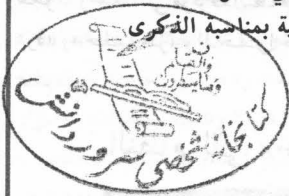 ية بمناسبة الذكرى
ن
والقلم
وما يسطرون
كتابخانه شخصی سرور دانش